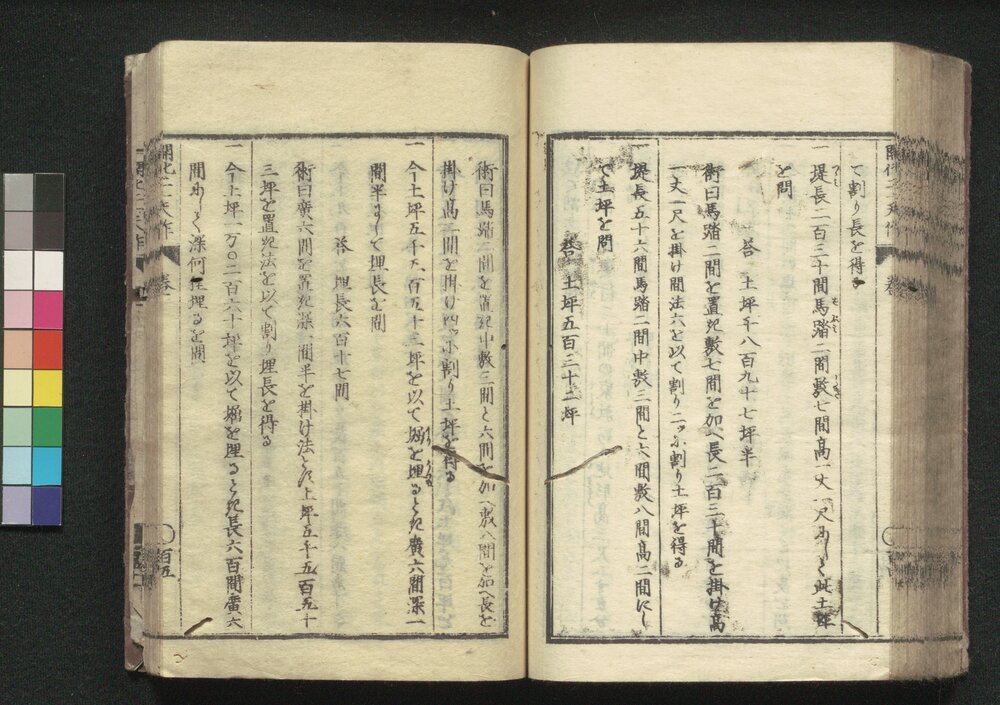 て割り長を得る
一 堤長二百三十間馬踏二間敷七間高一丈一尺ありて此土坪
を問
答 土坪千八百九十七坪半
術曰馬踏二間を置き敷七間を加へ長二百三十間を掛け高
一丈一尺を掛け間法六を以て割り二ッに割り土坪を得る
堤長五十六間馬踏二間中敷三間と六間敷八間高二間にし
て土坪を問
答 土坪五百三十二坪
術曰馬踏二間を置き中敷三間と六間を加へ敷八間を加へ長を
掛け高二間を掛け四ッに割り土坪を得る
一 今土坪五千五百五十三坪を以て堀を埋るとき廣六間深一
間半にして埋長を問
答 埋長六百十七間
術曰廣六間を置き深一間半を掛け法とき土坪五千五百五十
三坪を置き法を以て割り埋長を得る
一 今土坪一万〇二百六十坪を以て堀を埋るとき長六百間廣六
間ありて深何程埋るを問
巻
百五